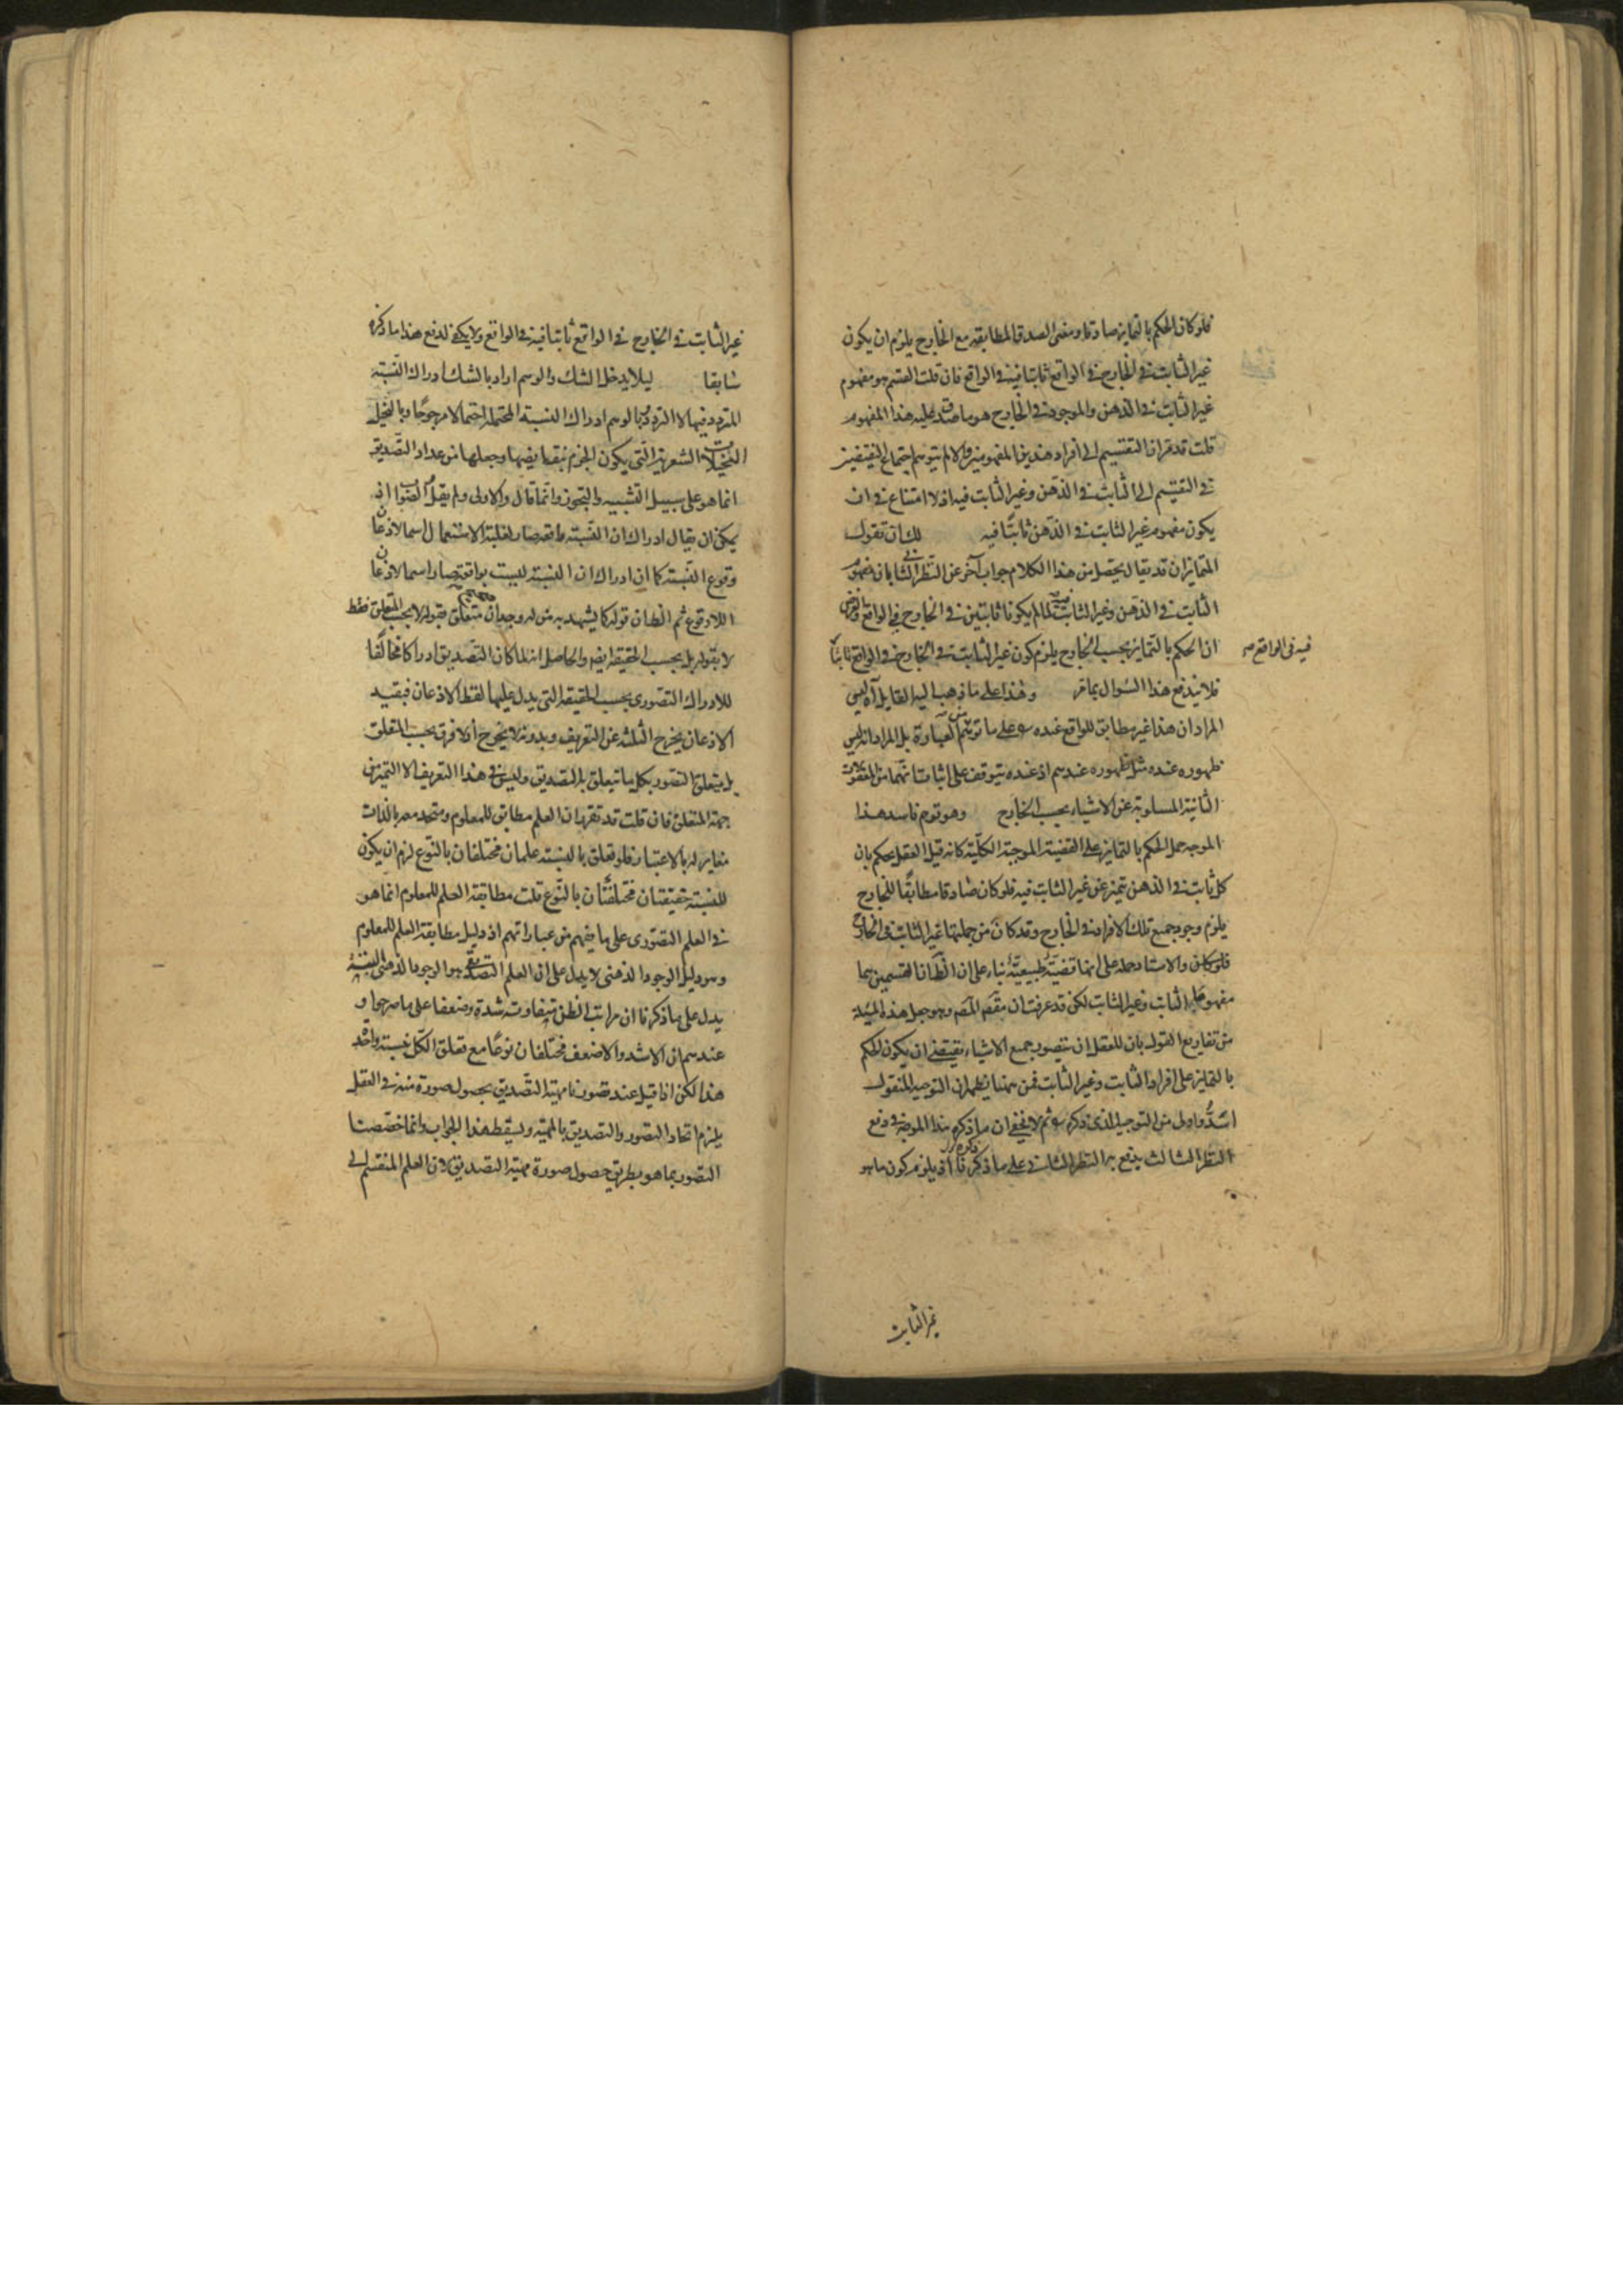 فلو كان الحكم بالتمايز صادقا ومعنى الصدق المطابقه مع الخارج يلزم ان يكون
غير الثابت في الخارج في الواقع ثابتا فيه في الواقع فان قلت القسم هو مفهوم
غير الثابت في الذهن والموجود في الخارج هو ما صدق عليه هذا المفهوم
قلت قد مر ان التقسيم الى افراد هذين المفهومين والا لم يتوهم اجتماع النقيضين
في التقسيم الى الثابت في الذهن وغير الثابت فيه اذ لا امتناع في ان
يكون مفهوم غير الثابت في الذهن ثابتا فيه لك ان تقول
المتمايزان قد يقال يتحصل من هذا الكلام جواب آخر عن النظر الثاني بان مفهوم
الثابت في الذهن وغير الثابت فيه لما لم يكونا ثابتين في الخارج في الواقع والفرض
ان الحكم بالتمايز بحسب الخارج يلزم كون غير الثابت في الخارج في الواقع ثابتا
فيه في الواقع صح
فلا يندفع هذا السؤال بما مر وهذا على ما ذهب اليه القايل آه ليس
المراد ان هذا غير مطابق للواقع عنده على ما توهم من العبارة بل المراد انه ليس
ظهوره عنده مثل ظهوره عندهم اذ عنده يتوقف على اثبات انهما من المعقولات
الثانية المسلوبة عن الاشياء بحسب الخارج وهو توهم فاسد هذا
الموجه حمل الحكم بالتمايز على القضية الموجبة الكلية كانه قيل العقل يحكم بان
كل ثابت في الذهن متميز عن غير الثابت فيه فلو كان صادقا مطابقا للخارج
يلزم وجود جميع تلك الافراد في الخارج وقد كان من جملتها غير الثابت في الخارج
والاستاد حمله على انها قضية طبيعية بناء على ان الظ ان القسمين هما
مفهوما الثابت وغير الثابت لكن قد عرفت ان مقصد المصنف وهو جعل هذه المسئلة
من تفاريع القول بان للعقل ان يتصور جميع الاشياء يقتضي ان يكون الحكم
بالتمايز على افراد الثابت وغير الثابت فمن ههنا يظهر ان التوجيه المنقول
اشد واولى من التوجيه الذي ذكره ثم لا يخفى ان ما ذكره هذا الموجه في دفع
النظر الثالث يدفع به النظر الثاني على ما ذكرنا اذ يلزم كون ما هو
غير الثابت
غير الثابت في الخارج في الواقع ثابتا فيه في الواقع ولا يكفي لدفع هذا ما ذكره
سابقا ليلا يدخل الشك والوهم اراد بالشك ادراك النسبة
المتردد فيها لا التردد وبالوهم ادراك النسبة المحتملة احتمالا مرجوحا وبالتخيل
التخيلات الشعرية التي يكون الجزم بنقايضها وجعلها من عداد التصديق
انما هو على سبيل التشبيه والتجوز وانما قال والاولى ولم يقل الصواب اذ
يمكن ان يقال ادراك ان النسبة واقعة صار لغلبة الاستعمال اسما لاذعان
وقوع النسبة كما ان ادراك ان النسبة ليست بواقعة صار اسما لاذعان
اللاوقوع ثم الظ ان قوله كما يشهد به من له وجدان متعلق بقوله لا بحسب المتعلق فقط
لا بقوله بل بحسب الحقيقة ايضا والحاصل انه لما كان التصديق ادراكا مخالفا
للادراك التصوري بحسب الحقيقة التي يدل عليها لفظ الاذعان فبقيد
الاذعان يخرج الثلثة عن التعريف وبدونه لا يخرج اذ لا فرق بحسب المتعلق
بل يتعلق التصور بكل ما يتعلق به التصديق وليس في هذا التعريف الا التميز من
جهة المتعلق فان قلت قد تقرر ان العلم مطابق للمعلوم ومتحد معه بالذات
مغاير له بالاعتبار فلو تعلق بالنسبة علمان مختلفان بالنوع لزم ان يكون
للنسبة حقيقتان مختلفتان بالنوع قلت مطابقة العلم للمعلوم انما هو
في العلم التصوري على ما يفهم من عباراتهم اذ دليل مطابقة العلم للمعلوم
وهو دليل الوجود الذهني لا يدل على ان العلم التصديقي هو الوجود الذهني للنسبة
يدل على ما ذكرنا ان مراتب الظن متفاوتة شدة وضعفا على ما صرحوا و
عندهم ان الاشد والاضعف مختلفان نوعا مع تعلق الكل بنسبة واحدة
هذا لكن اذا قيل عند تصورنا مهية التصديق بحصول صورة منه في العقل
يلزم اتحاد التصور والتصديق بالمهية ويسقط هذا الجواب وانما خصصنا
التصور بما هو بطريق حصول صورة مهية التصديق لان العلم المنقسم الى